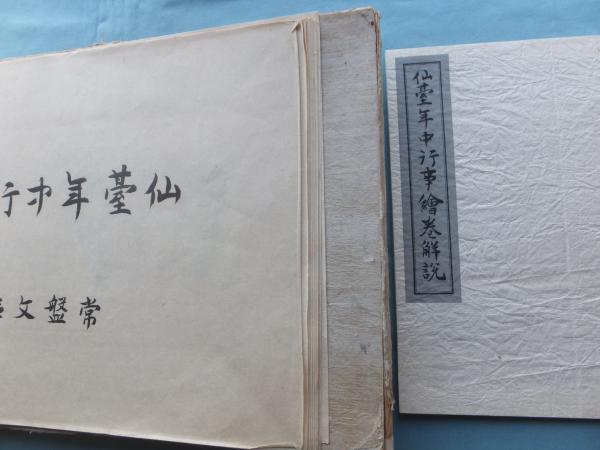 仙臺年中行
常盤文
仙臺年中行事繪卷解説